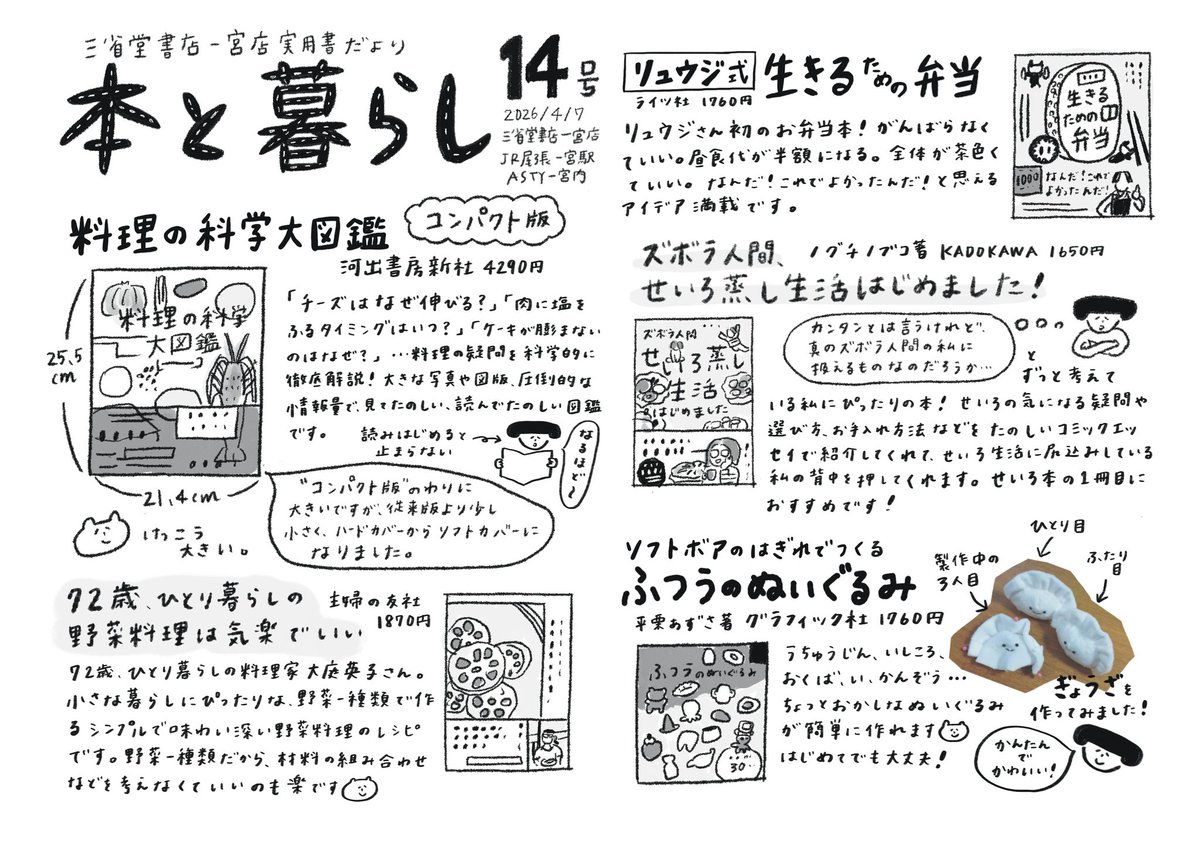 三省堂書店一宮店実用書だより
本と暮らし
14号
2026/4/17
三省堂書店一宮店
JR尾張一宮駅
ASTY一宮内
料理の科学大図鑑
コンパクト版
河出書房新社 4290円
料理の科学
大図鑑
25.5
cm
21.4cm
「チーズはなぜ伸びる?」「肉に塩を
ふるタイミングはいつ?」「ケーキが膨まない
のはなぜ?」…料理の疑問を科学的に
徹底解説!大きな写真や図版、圧倒的な
情報量で、見てたのしい、読んでたのしい図鑑
です。
読みはじめると
止まらない
なるほど〜
"コンパクト版"のわりに
大きいですが、従来版より少し
小さく、ハードカバーからソフトカバーに
なりました。
けっこう
大きい。
72歳、ひとり暮らしの
野菜料理は気楽でいい
主婦の友社
1870円
72歳、ひとり暮らしの料理家大庭英子さん。
小さな暮らしにぴったりな、野菜一種類で作
るシンプルで味わい深い野菜料理のレシピ
です。野菜一種類だから、材料の組み合わせ
などを考えなくていいのも楽です
リュウジ式 生きるための弁当
ライツ社 1760円
リュウジさん初のお弁当本!がんばらなく
ていい。昼食代が半額になる。全体が茶色く
ていい。なんだ!これでよかったんだ!と思える
アイデア満載です。
生きる
ための
弁当
1000
なんだ!これで
よかったんだ!
ズボラ人間、
せいろ蒸し生活はじめました!
ノグチノブコ著 KADOKAWA 1650円
ズボラ人間
せいろ蒸し
生活
はじめました
カンタンとは言うけれど、
真のズボラ人間の私に
扱えるものなのだろうか…
と
ずっと考えて
いる私にぴったりの本!せいろの気になる疑問や
選び方、お手入れ方法などをたのしいコミックエッ
セイで紹介してくれて、せいろ生活に尻込みしている
私の背中を押してくれます。せいろ本の1冊目に
おすすめです!
ソフトボアのはぎれでつくる
ふつうのぬいぐるみ
平栗あずさ著 グラフィック社 1760円
ふつうのぬいぐるみ
30
うちゅうじん、いしころ、
おくば、い、かんぞう…
ちょっとおかしなぬいぐるみ
が簡単に作れます
はじめてでも大丈夫!
ひとり目
ふたり
目
製作中の
3人目
ぎょうざを
作ってみました!
かんたん
で
かわいい!